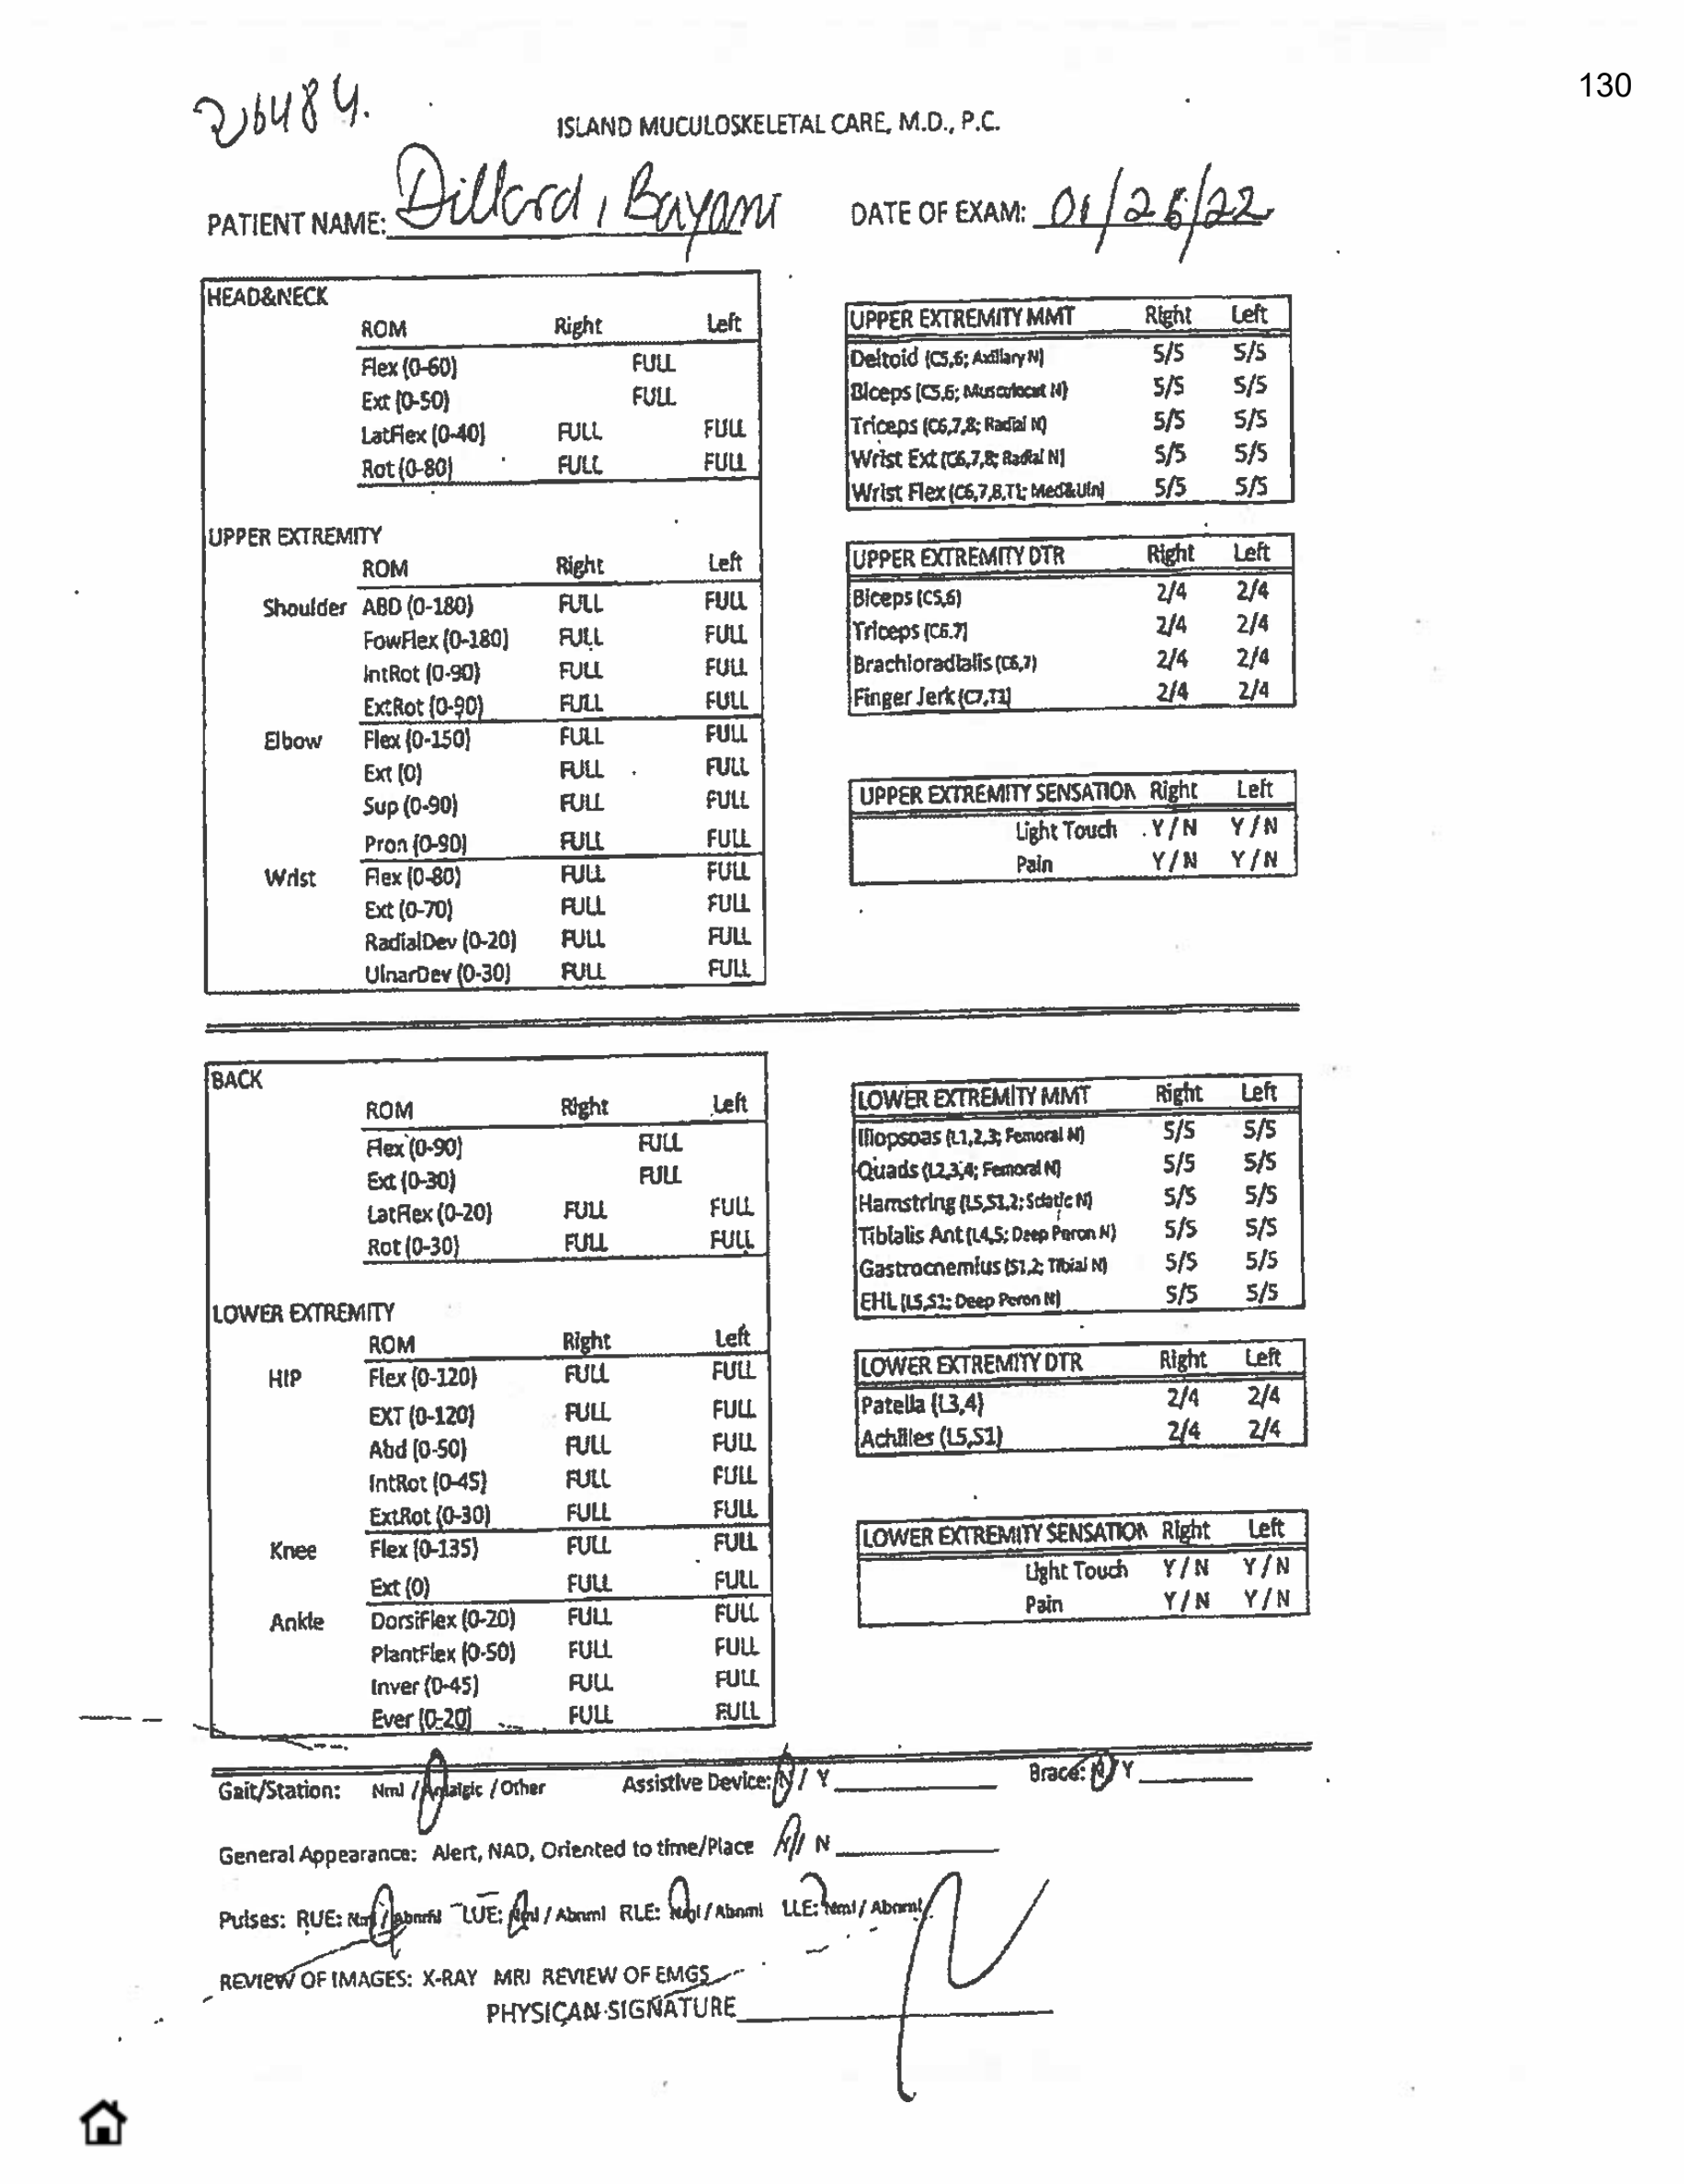 130
26484.
ISLAND MUCULOSKELETAL CARE, M.D., P.C.
PATIENT NAME: Dillard, Bayani
DATE OF EXAM: 01/26/22
HEAD&NECK
ROM Right Left
Flex (0-60) FULL
Ext (0-50) FULL
LatFlex (0-40) FULL FULL
Rot (0-80) FULL FULL
UPPER EXTREMITY
ROM Right Left
Shoulder ABD (0-180) FULL FULL
FowFlex (0-180) FULL FULL
IntRot (0-90) FULL FULL
ExtRot (0-90) FULL FULL
Elbow Flex (0-150) FULL FULL
Ext (0) FULL FULL
Sup (0-90) FULL FULL
Pron (0-90) FULL FULL
Wrist Flex (0-80) FULL FULL
Ext (0-70) FULL FULL
RadialDev (0-20) FULL FULL
UlnarDev (0-30) FULL FULL
UPPER EXTREMITY MMT Right Left
Deltoid (C5,6; Axillary N) 5/5 5/5
Biceps (C5,6; Musculocut N) 5/5 5/5
Triceps (C6,7,8; Radial N) 5/5 5/5
Wrist Ext (C6,7,8; Radial N) 5/5 5/5
Wrist Flex (C6,7,8,T1; Med&Uln) 5/5 5/5
UPPER EXTREMITY DTR Right Left
Biceps (C5,6) 2/4 2/4
Triceps (C6.7) 2/4 2/4
Brachioradialis (C6,7) 2/4 2/4
Finger Jerk (C7,T1) 2/4 2/4
UPPER EXTREMITY SENSATION Right Left
Light Touch Y/N Y/N
Pain Y/N Y/N
BACK
ROM Right Left
Flex (0-90) FULL
Ext (0-30) FULL
LatFlex (0-20) FULL FULL
Rot (0-30) FULL FULL
LOWER EXTREMITY
ROM Right Left
HIP Flex (0-120) FULL FULL
EXT (0-120) FULL FULL
Abd (0-50) FULL FULL
IntRot (0-45) FULL FULL
ExtRot (0-30) FULL FULL
Knee Flex (0-135) FULL FULL
Ext (0) FULL FULL
Ankle DorsiFlex (0-20) FULL FULL
PlantFlex (0-50) FULL FULL
Inver (0-45) FULL FULL
Ever (0-20) FULL FULL
LOWER EXTREMITY MMT Right Left
Iliopsoas (L1,2,3; Femoral N) 5/5 5/5
Quads (L2,3,4; Femoral N) 5/5 5/5
Hamstring (L5,S1,2; Sciatic N) 5/5 5/5
Tibialis Ant (L4,5; Deep Peron N) 5/5 5/5
Gastrocnemius (S1,2; Tibial N) 5/5 5/5
EHL (L5,S1; Deep Peron N) 5/5 5/5
LOWER EXTREMITY DTR Right Left
Patella (L3,4) 2/4 2/4
Achilles (L5,S1) 2/4 2/4
LOWER EXTREMITY SENSATION Right Left
Light Touch Y/N Y/N
Pain Y/N Y/N
Gait/Station: Nml / Antalgic / Other Assistive Device: N / Y Brace: N / Y
General Appearance: Alert, NAD, Oriented to time/Place Y / N
Pulses: RUE: Nml / Abnml LUE: Nml / Abnml RLE: Nml / Abnml LLE: Nml / Abnml
REVIEW OF IMAGES: X-RAY MRI REVIEW OF EMGS
PHYSICAN SIGNATURE